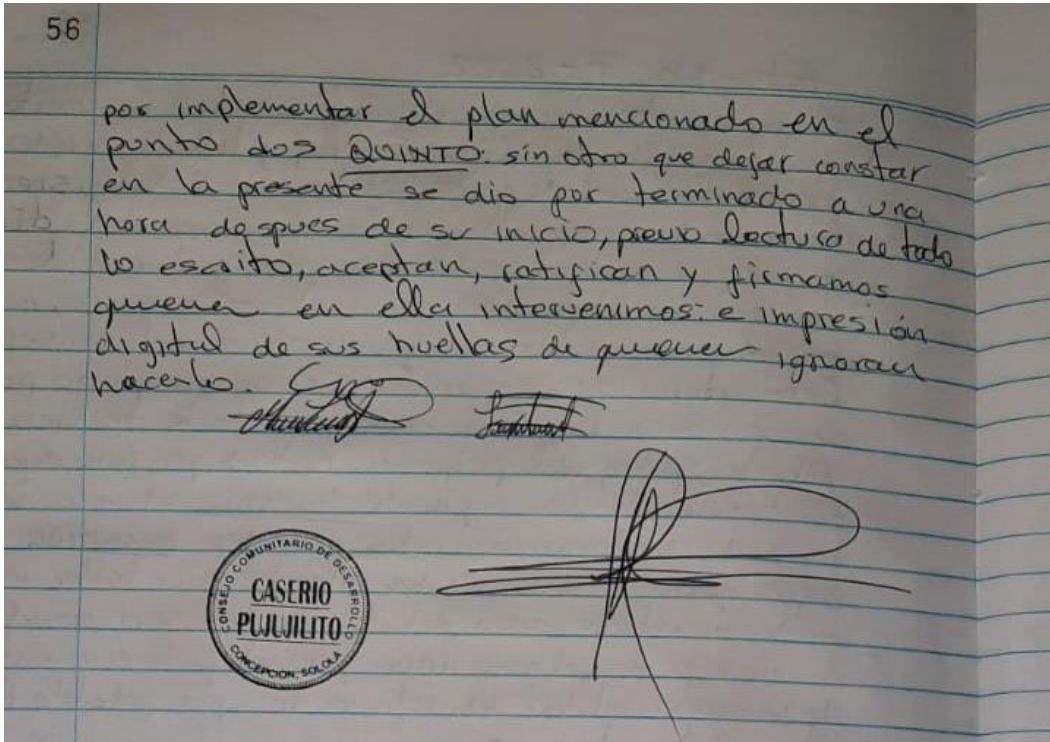 56
por implementar el plan mencionado en el
punto dos QUINTO: sin otro que dejar constar
en la presente se dio por terminado a una
hora despues de su inicio, previo lectura de todo
lo escrito, aceptan, ratifican y firmamos
quienes en ella intervenimos: e impresión
digital de sus huellas de quienes ignoran
hacerlo.
CONSEJO COMUNITARIO DE DESARROLLO
CASERIO
PUJUJILITO
CONCEPCION, SOLOLÁ